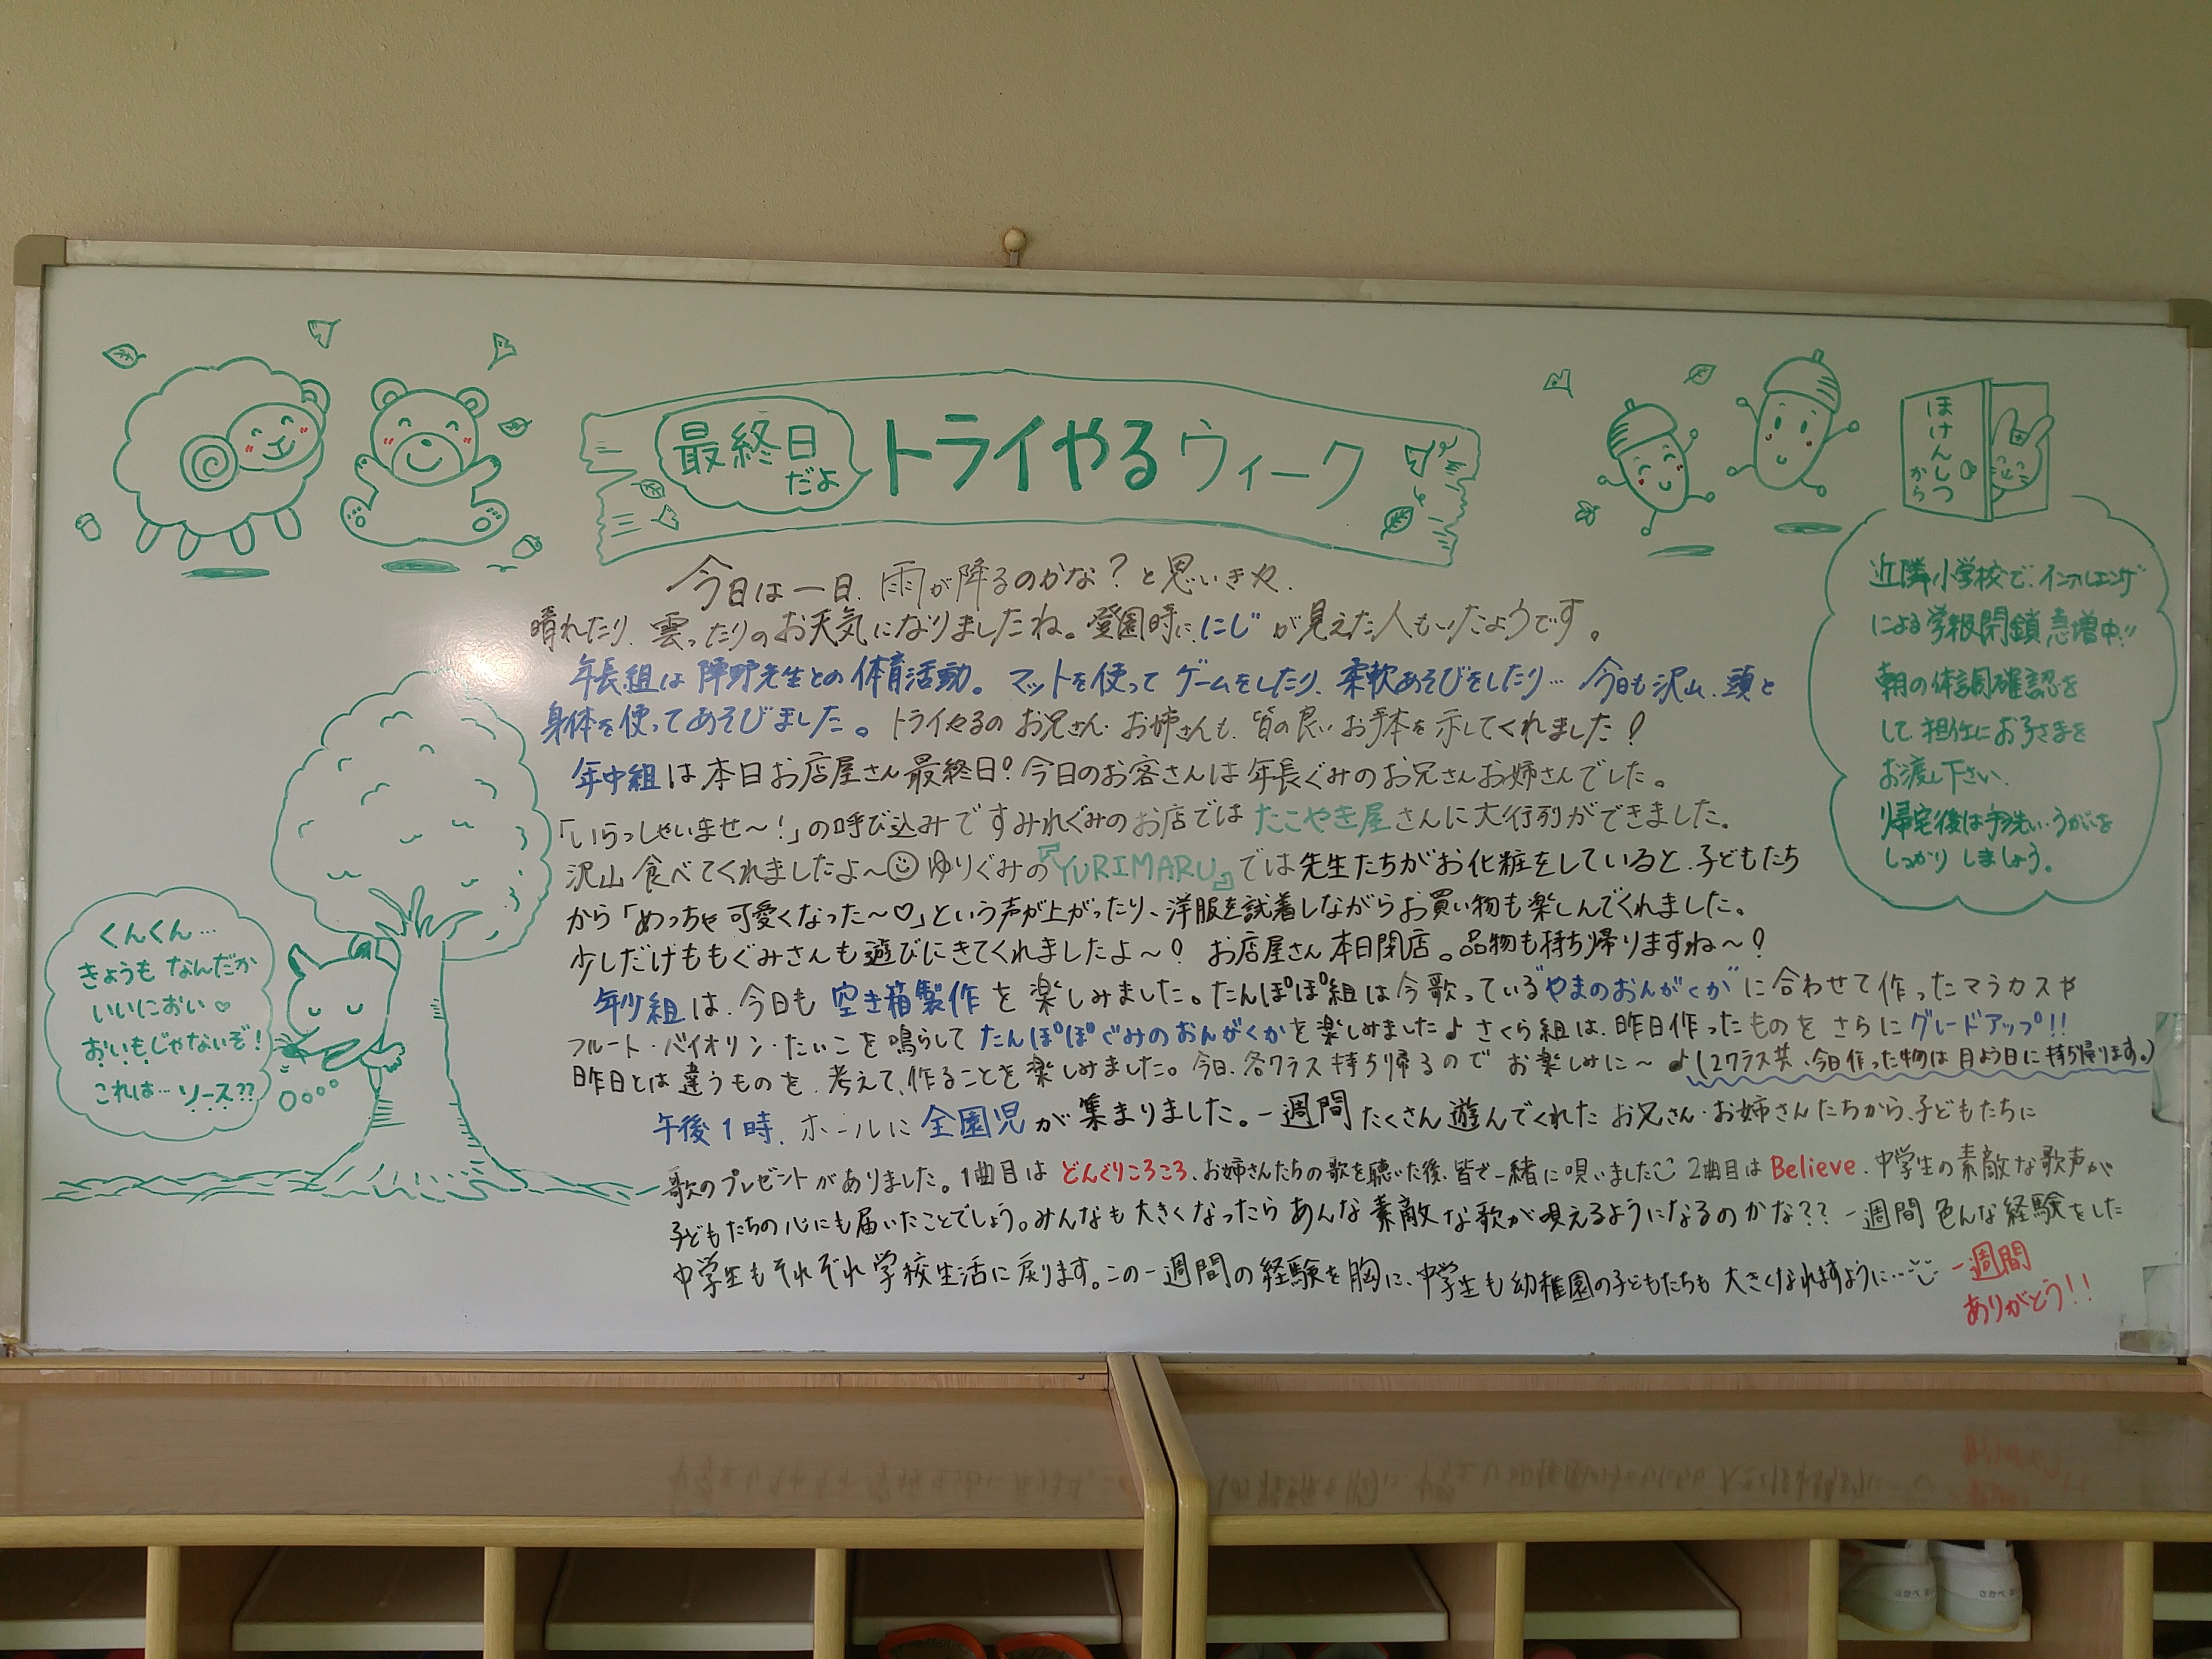 最終日
だよ
トライやるウィーク
今日は一日、雨が降るのかな？と思いきや、
晴れたり、雲ったりのお天気になりましたね。登園時に、にじが見えた人もいたようです。
年長組は陣野先生との体育活動。マットを使ってゲームをしたり、柔軟あそびをしたり…今日も沢山、頭と
身体を使ってあそびました。トライやるのお兄さん・お姉さんも、皆の良いお手本を示してくれました！
年中組は本日お店屋さん最終日！今日のお客さんは年長ぐみのお兄さんお姉さんでした。
「いらっしゃいませ～！」の呼び込みですみれぐみのお店ではたこやき屋さんに大行列ができました。
沢山食べてくれましたよ～☺ゆりぐみの『YURIMARU』では先生たちがお化粧をしていると、子どもたち
から「めっちゃ可愛くなった～♡」という声が上がったり、洋服を試着しながらお買い物も楽しんでくれました。
少しだけももぐみさんも遊びにきてくれましたよ～！お店屋さん本日閉店。品物も持ち帰りますね～！
年少組は、今日も空き箱製作を楽しみました。たんぽぽ組は今歌っている"やまのおんがくか"に合わせて作ったマラカスや
フルート・バイオリン・たいこを鳴らしてたんぽぽぐみのおんがくかを楽しみました♪さくら組は、昨日作ったものをさらにグレードアップ!!
昨日とは違うものを、考えて、作ることを楽しみました。今日、各クラス持ち帰るのでお楽しみに～♪(2クラス共、今日作った物は月よう日に持ち帰ります。)
午後1時、ホールに全園児が集まりました。一週間たくさん遊んでくれたお兄さん・お姉さんたちから、子どもたちに
歌のプレゼントがありました。1曲目はどんぐりころころ、お姉さんたちの歌を聴いた後、皆で一緒に唄いました 2曲目はBelieve、中学生の素敵な歌声が
子どもたちの心にも届いたことでしょう。みんなも大きくなったらあんな素敵な歌が唄えるようになるのかな？？一週間色んな経験をした
中学生もそれぞれ学校生活に戻ります。この一週間の経験を胸に、中学生も幼稚園の子どもたちも大きくなれますように…
一週間
ありがとう!!
ほけんしつ
から
近隣小学校で、インフルエンザ
による学級閉鎖急増中!!
朝の体調確認を
して、担任にお子さまを
お渡し下さい。
帰宅後は手洗い・うがいを
しっかりしましょう。
くんくん…
きょうもなんだか
いいにおい♡
おいもじゃないぞ！
これは…ソース??
さかべ
さかべ